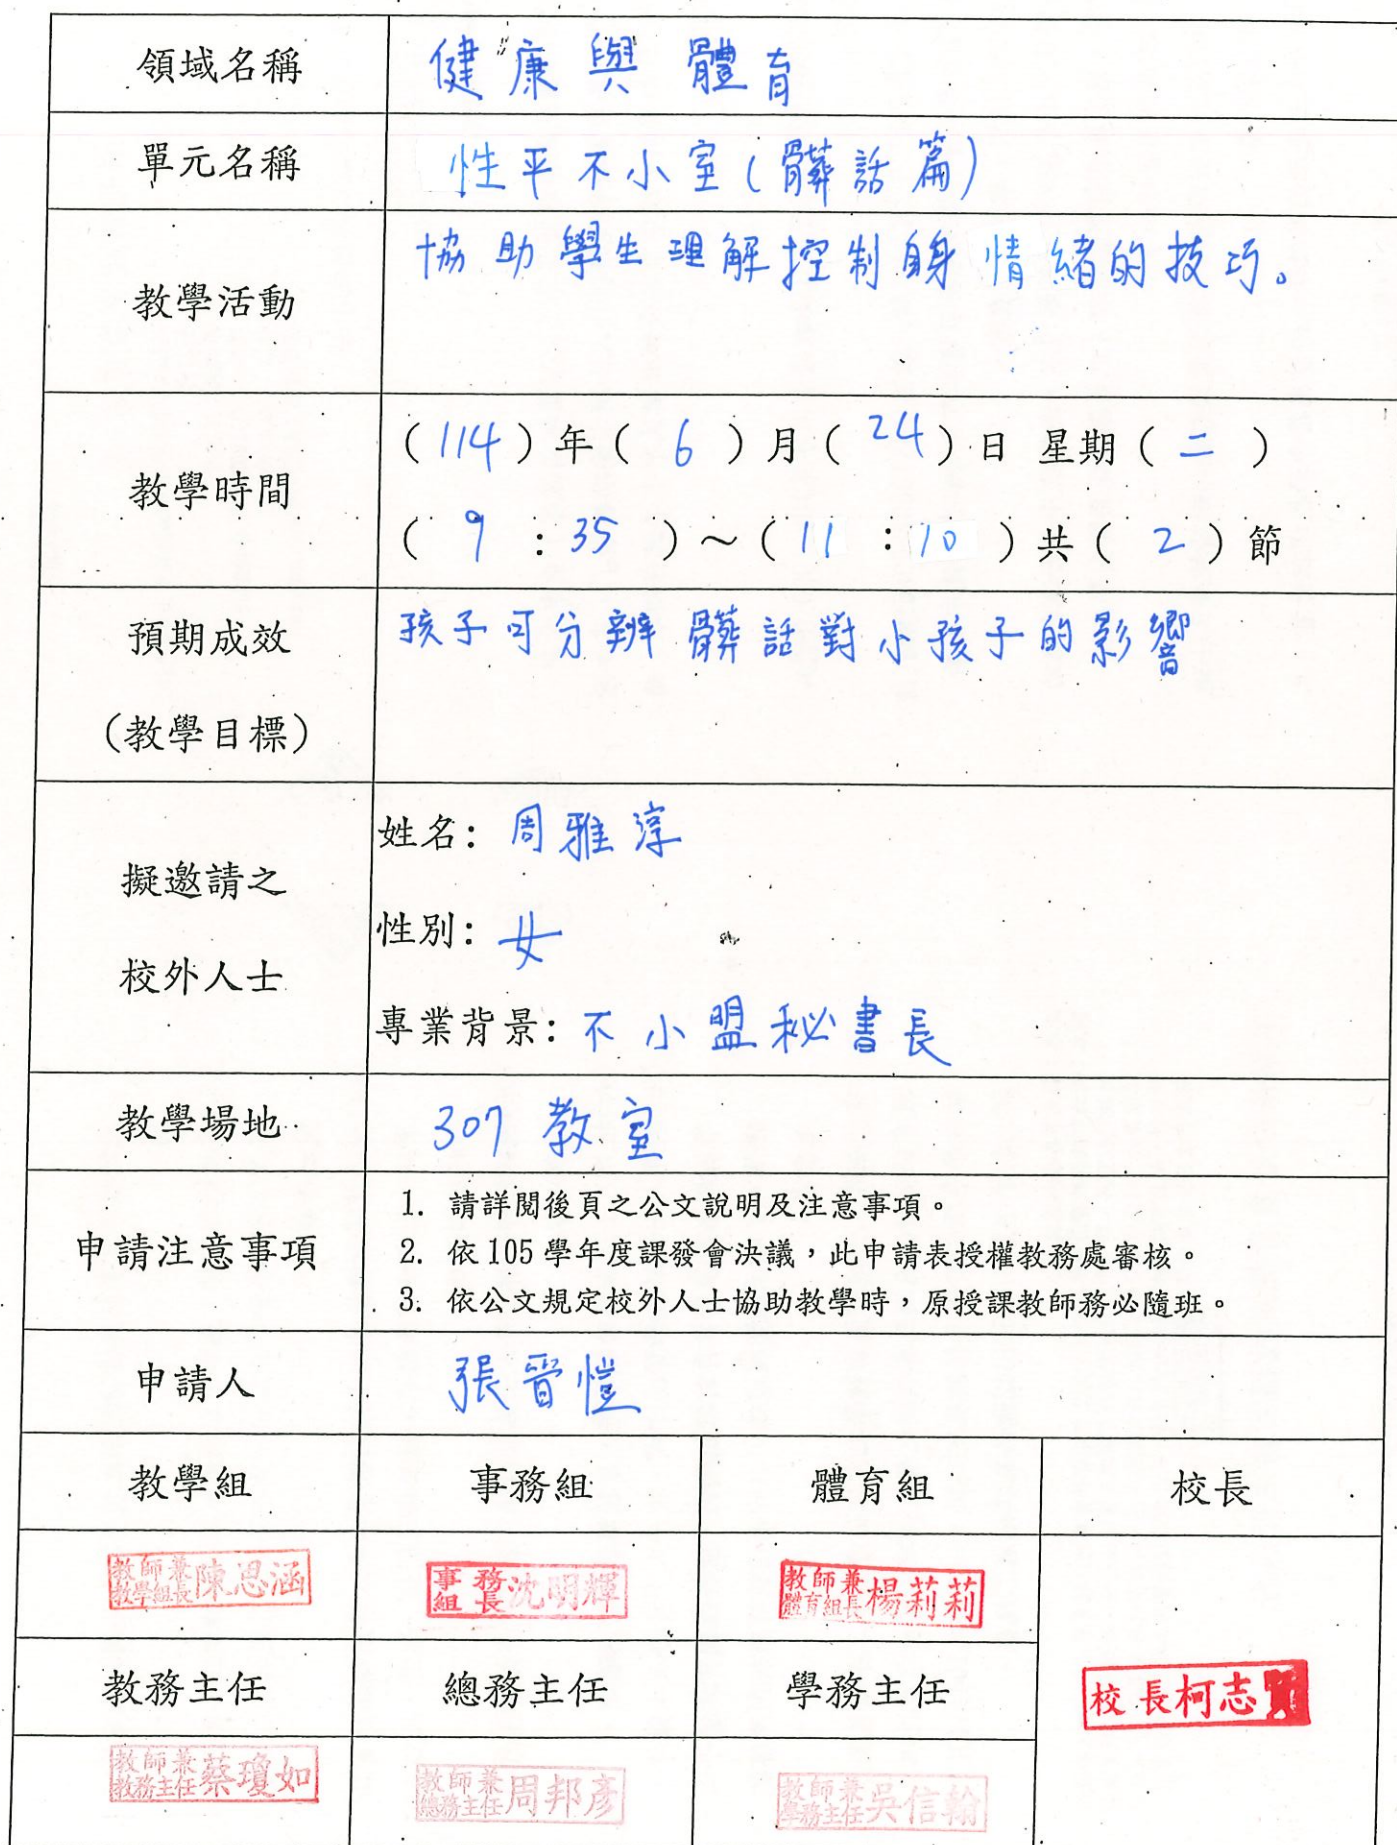 領域名稱 健康與體育
單元名稱 性平不小室(髒話篇)
教學活動 協助學生理解控制自身情緒的技巧。
教學時間
(114)年(6)月(24)日 星期(二)
(9:35)~(11:10)共(2)節
預期成效 孩子可分辨髒話對小孩子的影響
(教學目標)
擬邀請之
校外人士
姓名:周雅淳
性別:女
專業背景:不小盟秘書長
教學場地 307教室
申請注意事項
1. 請詳閱後頁之公文說明及注意事項。
2. 依105學年度課發會決議,此申請表授權教務處審核。
3. 依公文規定校外人士協助教學時,原授課教師務必隨班。
申請人 張晉愷
教學組 事務組 體育組 校長
教師兼教學組長陳思涵 事務組長沈明輝 教師兼體育組長楊莉莉
教務主任 總務主任 學務主任
校長柯志
教師兼教務主任蔡瓊如 教師兼總務主任周邦彥 教師兼學務主任吳信翰